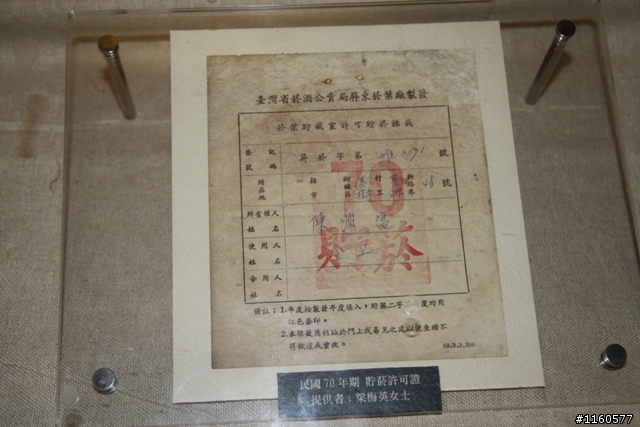 臺灣省菸酒公賣局屏東菸葉廠製發
菸葉貯藏室許可貯菸標識
登記號碼 屏菸字第 2071 號
所在地 縣市 鄉鎮區 村里 街路巷 48 號
所有權人姓名 陳
使用人姓名
合用人姓名
70
貯菸
備註：1.年度按製發年度填入，貯菸二字 度均用
紅色套印。
2.本標識應粘貼於門上或易見之處以便查稽不
得故違或塗改。
69.9.3,500
民國70年期 貯菸許可證
提供者：梁梅英女士
#1160577